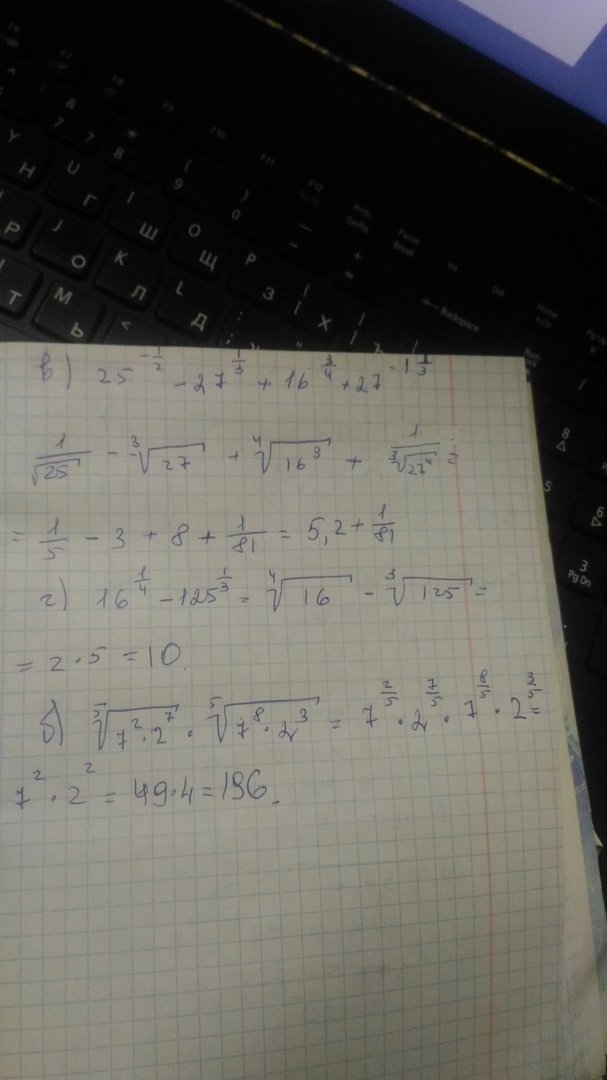 F6
F7
F8
F9
F10
F11
F12
& 7 7
* 8
( 9
) 0
Pause Break
Ins
Del
Home
← Backspace
Y Н
U Г
I Ш
O Щ
P З
Х
J О
K Л
L Д
Т
M Ь
<
8
5
6
3 Pg Dn
в) 25^{-\frac{1}{2}} - 27^{\frac{1}{3}} + 16^{\frac{3}{4}} + 27^{-1\frac{1}{3}}
\frac{1}{\sqrt{25}} - \sqrt[3]{27} + \sqrt[4]{16^3} + \frac{1}{\sqrt[3]{27^4}} =
= \frac{1}{5} - 3 + 8 + \frac{1}{81} = 5,2 + \frac{1}{81}
г) 16^{\frac{1}{4}} - 125^{\frac{1}{3}} = \sqrt[4]{16} - \sqrt[3]{125} =
= 2 · 5 = 10
б) \sqrt[5]{7^2 · 2^7} · \sqrt[5]{7^8 · 2^3} = 7^{\frac{2}{5}} · 2^{\frac{7}{5}} · 7^{\frac{8}{5}} · 2^{\frac{3}{5}} =
7^2 · 2^2 = 49 · 4 = 196.